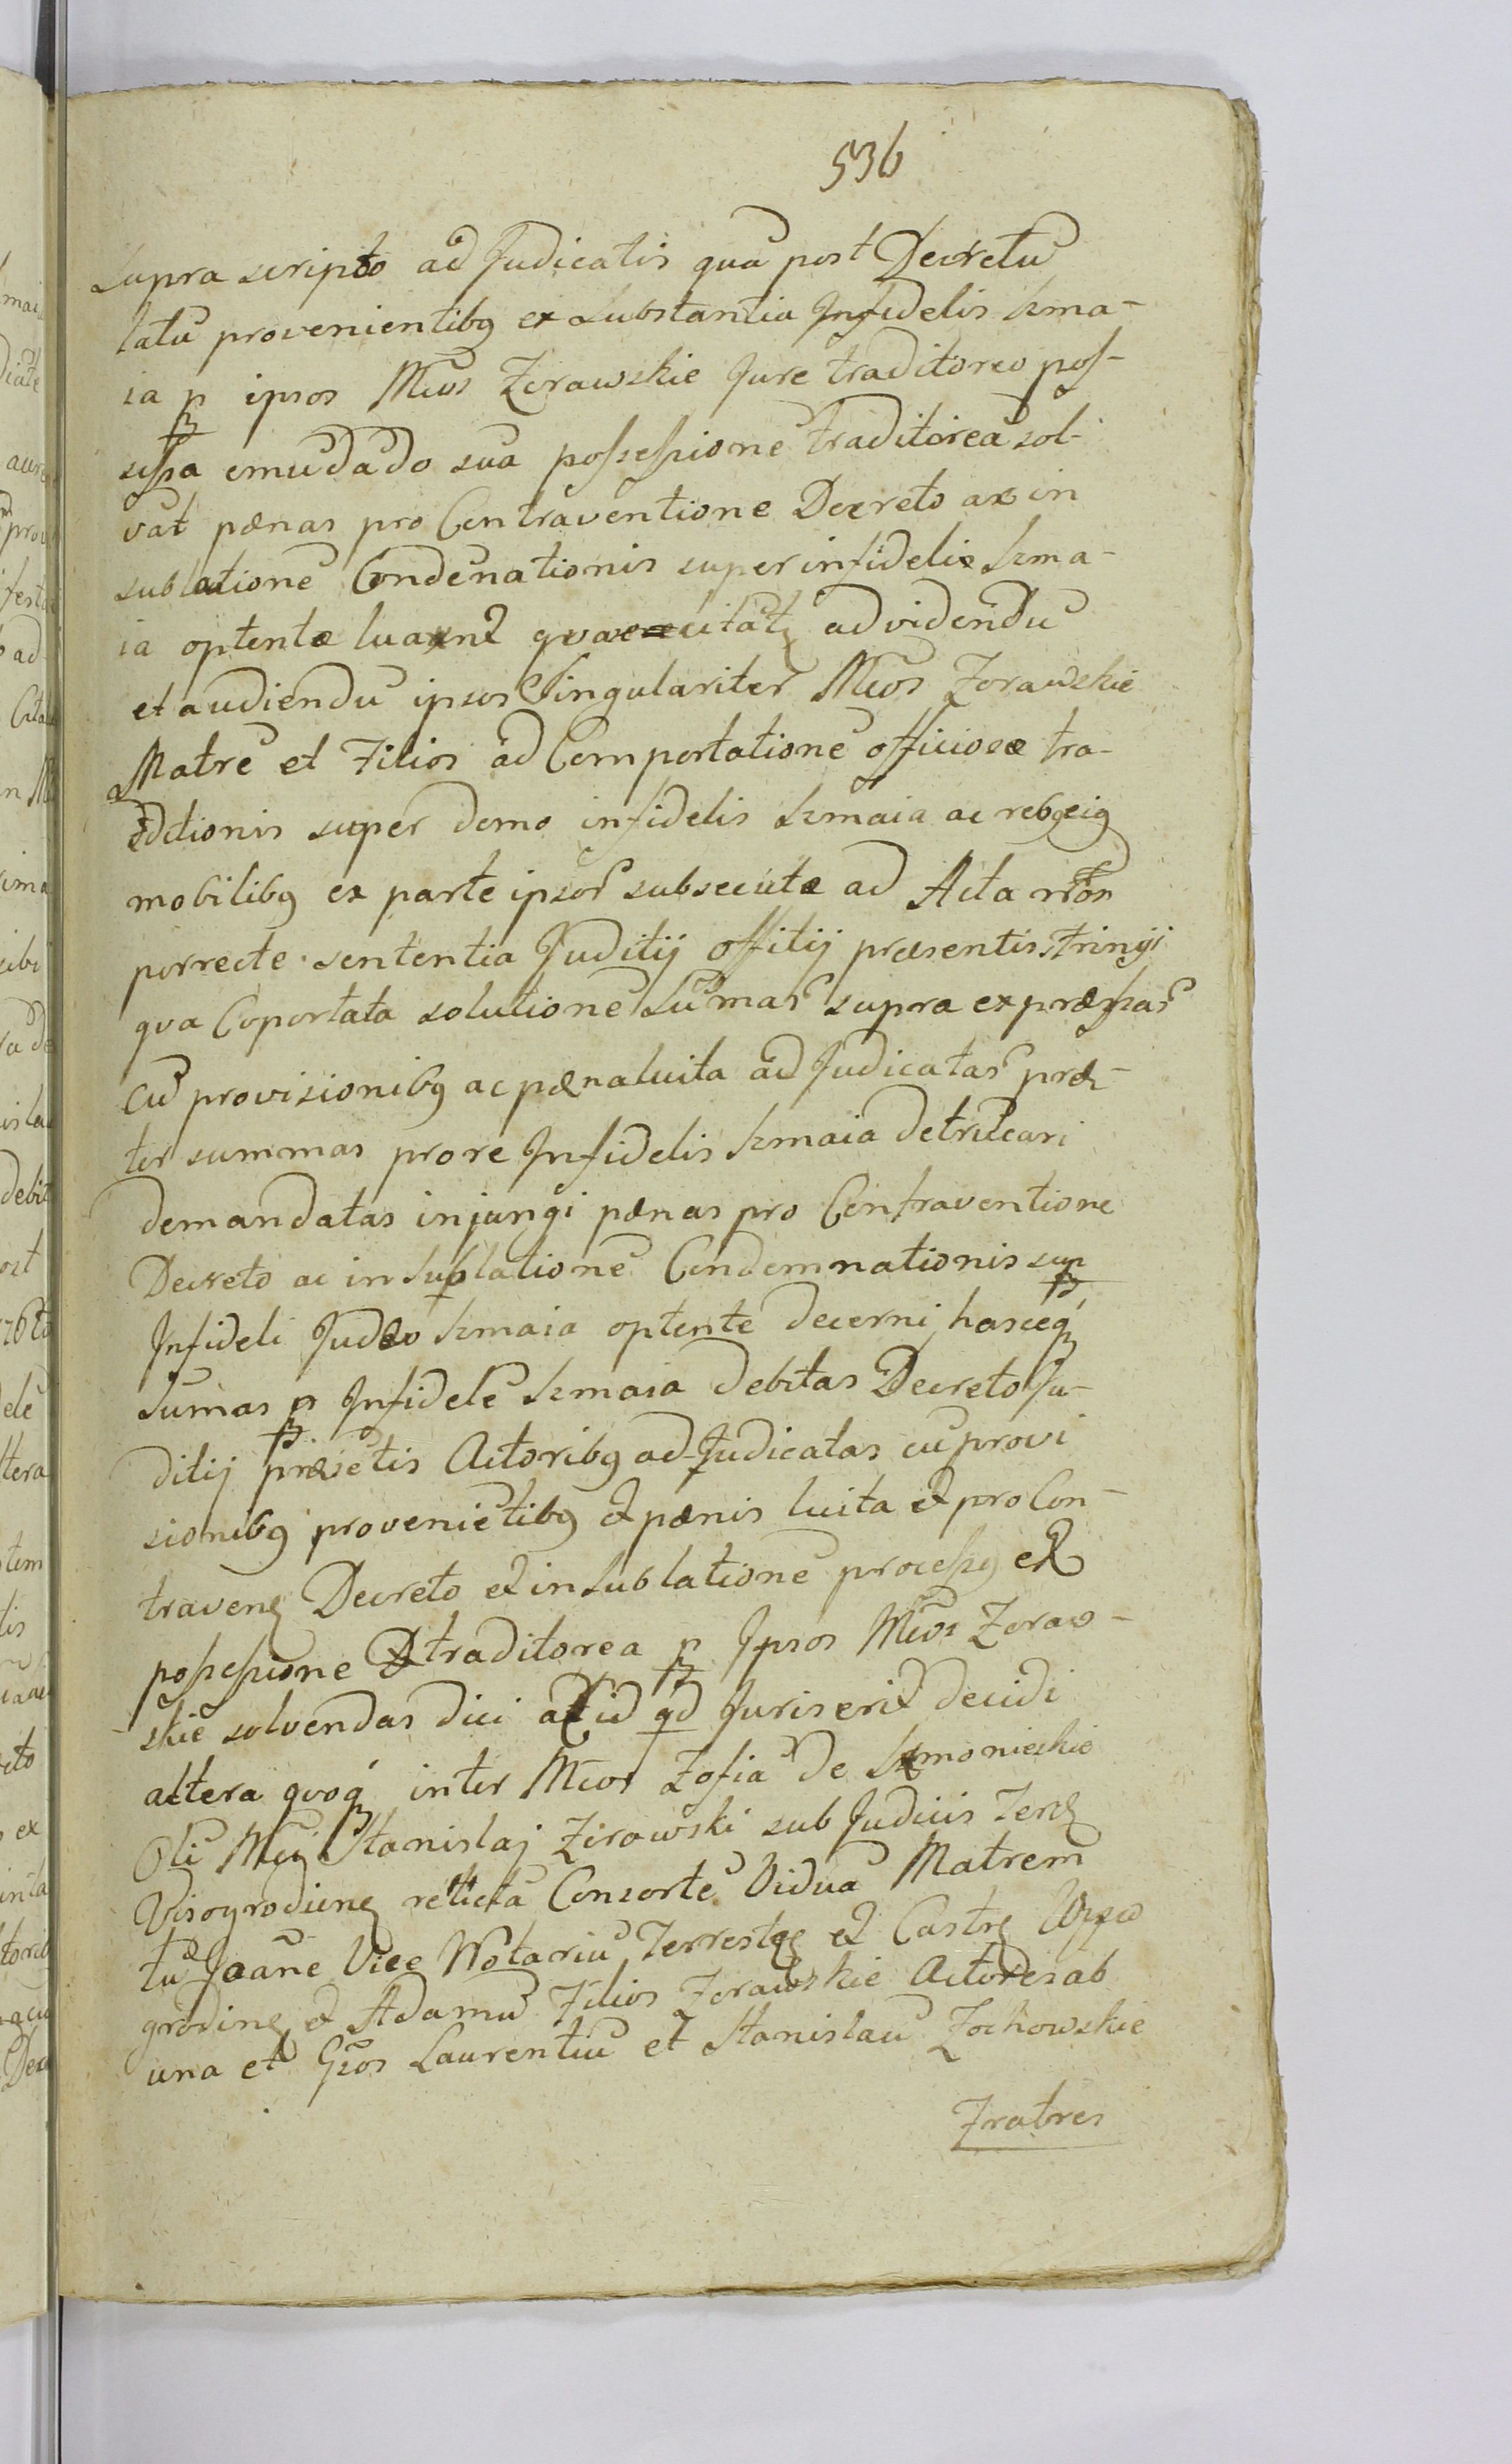 536
supra scripto adJudicatis quā post Decretū
latū provenientibg ex substantia Infidelis Szma-
ia p ipsos Mcos Zorawskie Jure traditoreo pos-
sessa emūdādo suā possessionē traditoreā sol-
vāt pænas pro Contraventione Decreto ac in
sublationē Condēnationis super infideli Szma-
ia optentæ luant citatꝫ ad vidēndū
et audiendū ipsos Singulariter Mcos Zorawskie
Matrē et Filios ad Comportationē officiosæ tra-
ditionis super domo infidelis Szmaia ac rebg eig
mobilibg ex parte ipsor̄ subsecutæ ad Acta
porrectæ sententia Juditij offitij præsentis stringi
qva Coportata solutionē Sūmar̄ supra expræssar̄
cū provisionibg ac pæna luita adJudicatar̄ præ-
ter summas pro re Infidelis Szmaia detrūcari
demandatas injungi pænas pro Contraventione
Decreto ac in Sublationē Condemnationis sup
Infideli Judæo Szmaia optentæ decerni hasceq́
Sumas p Infidelē Szmaia debitas Decreto Ju-
ditij præsētis Actoribg ad-Judicatas cū provi
sionibg proveniētibg et pænis luita et pro Con-
travenꝫ Decreto et in Sublationē processg ex
possessione traditorea p Ipsos Mcos Zoraw-
skie solvendas dici at id qd Juris erit decidi
altera qvoq́ inter Mcos Zofiā de Szmonieskie
Oli Mci Stanislaj Zorawski sub Judicis Terrꝫ
Visogrodienꝫ relictā Consortē Viduā Matrem
tū Joañē Vice Notariū Terrestrꝫ et Castrꝫ
grodinꝫ et Adamū Filios Zorawskie Actores ab
una et Gsos Laurentiū et Stanislaū Zochowskie
Fratres